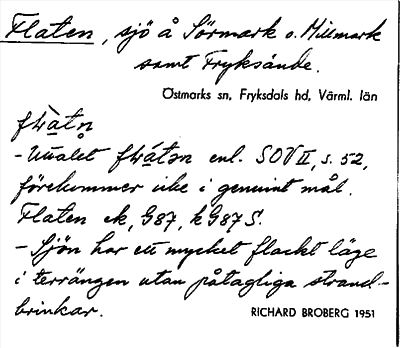 Flaten, sjö å Sörmark o. Millmark
samt Fryksände.
Östmarks sn, Fryksdals hd, Värml. län
- Uttalet enl. SOV II, s. 52,
förekommer icke i genuint mål.
Flaten ek, G87, kG87S.
- Sjön har ett mycket flackt läge
i terrängen utan påtagliga strand-
brinkar. RICHARD BROBERG 1951